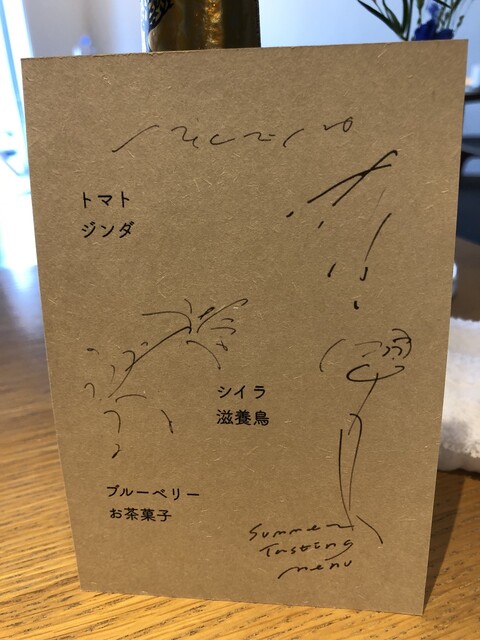 トマト
ジンダ
シイラ
滋養鳥
ブルーベリー
お茶菓子
Summer
Tasting
menu